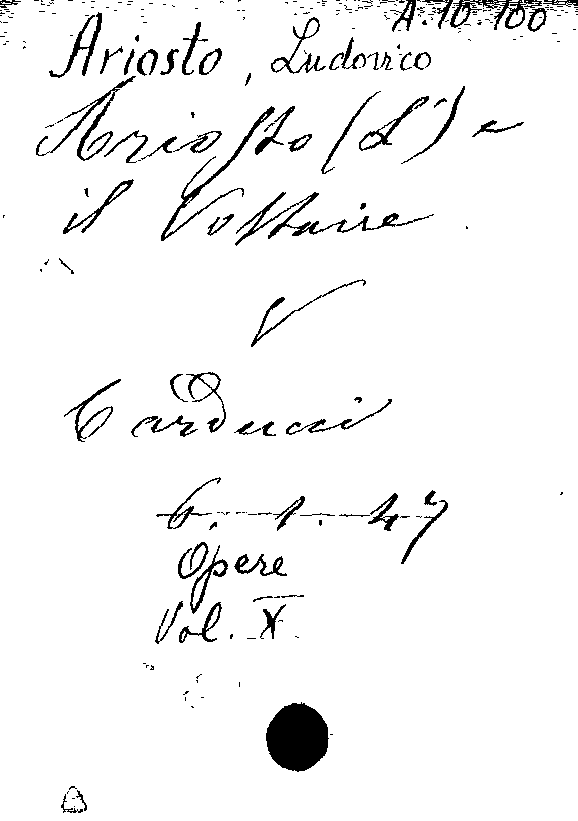 A.10.100
Ariosto, Ludovico
Ariosto (L') e
il Voltaire
V
Carducci
6. 1. 47
Opere
Vol. X